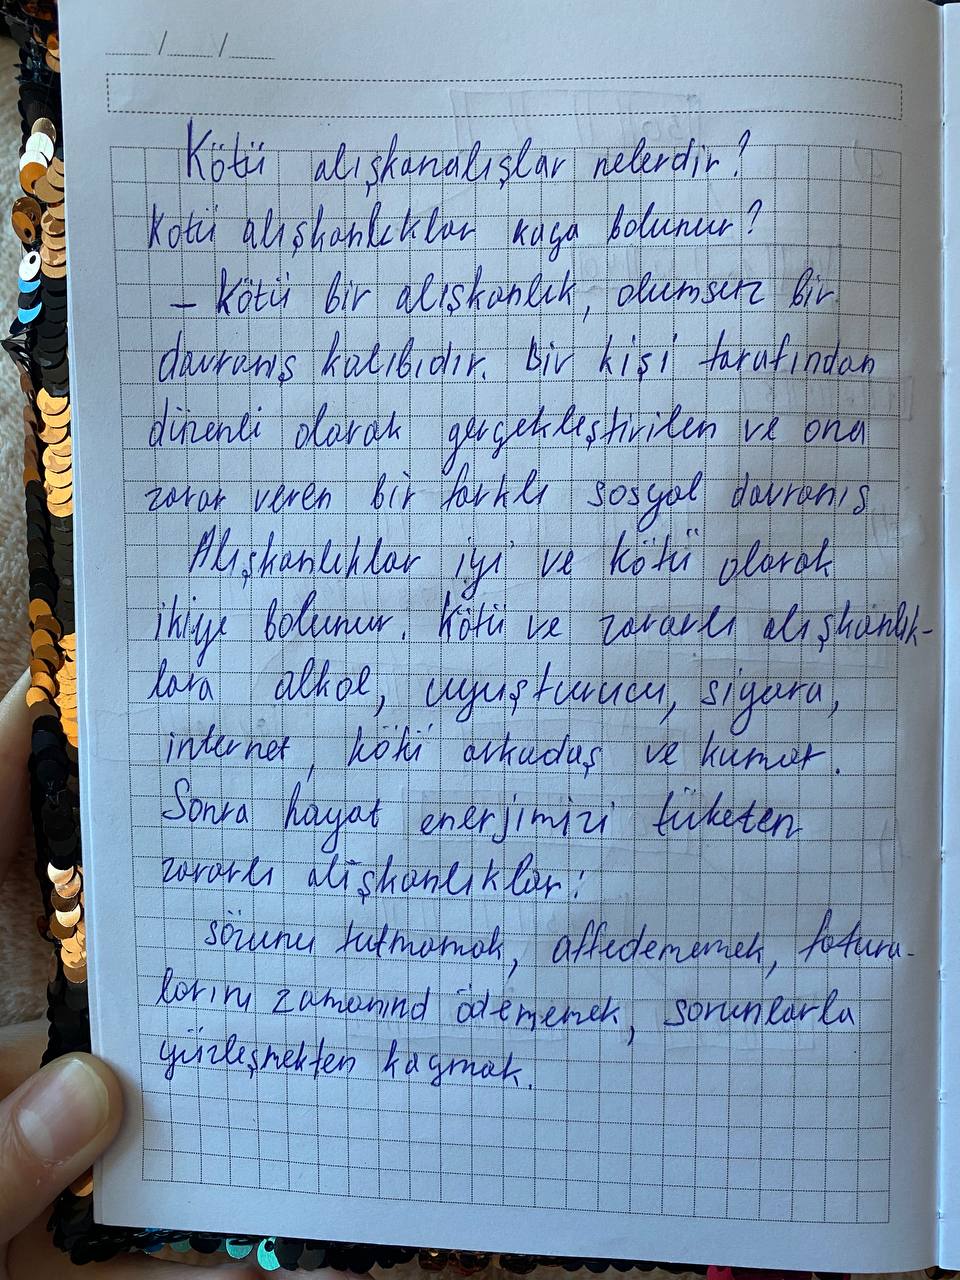 / /
Kötü alışkanalışlar nelerdir?
Kötü alışkanlıklar kaça bolunur?
– Kötü bir alışkanlık, olumsuz bir
davranış kalıbıdır. Bir kişi tarafından
düzenli olarak gerçekleştirilen ve ona
zarar veren bir farklı sosyal davranış
Alışkanlıklar iyi ve kötü olarak
ikiye bolunur. Kötü ve zararlı alışkanlık-
lara alkol, uyuşturucu, sigara,
internet, kötü arkadaş ve kumar.
Sonra hayat enerjimizi tüketen
zararlı alışkanlıklar:
sözunu tutmamak, affedememek, fatura-
larını zamanınd ödememek, sorunlarla
yüzleşmekten kaçmak.